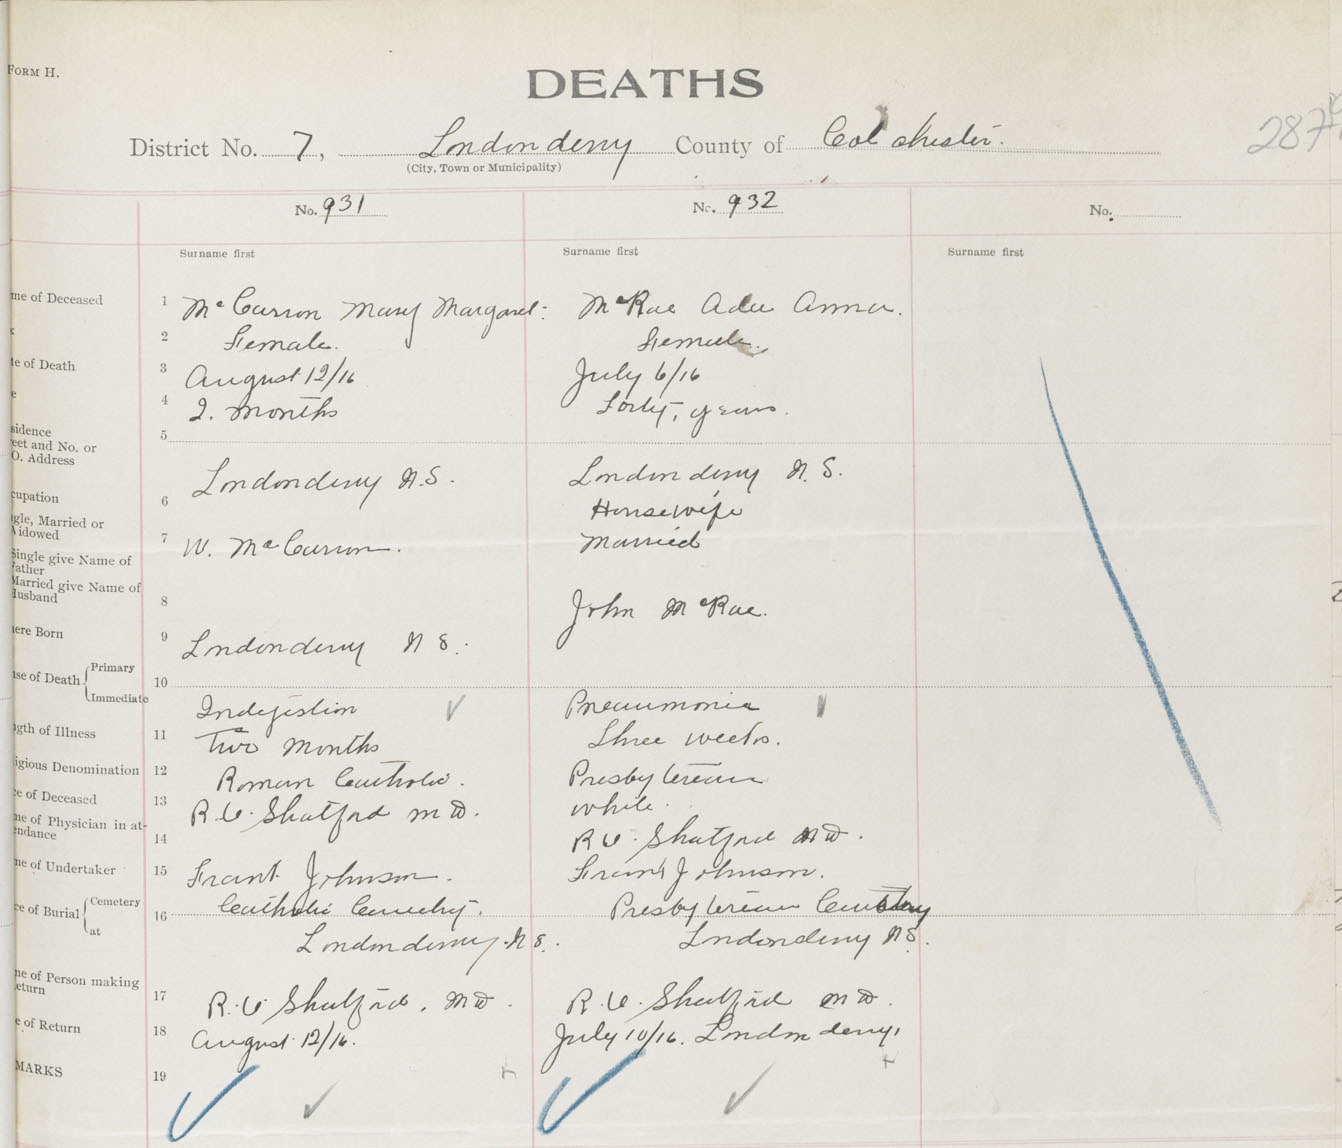 FORM H.
DEATHS
District No. 7, Londonderry County of Colchester.
(City, Town or Municipality)
287
No. 931 No. 932 No.
Surname first Surname first Surname first
me of Deceased 1 McCarron Mary Margaret. McRae Ada Anna.
2 Female. Female.
te of Death 3 August 12/16 July 6/16
4 2. Months Forty, years.
sidence
eet and No. or
O. Address
5
Londonderry N.S. Londonderry N.S.
cupation 6 Housewife
gle, Married or
idowed
7 W. McCarron. Married
Single give Name of
ather
Married give Name of
Husband
8 John McRae.
ere Born 9 Londonderry N S.
se of Death Primary 10
Immediate Indigestion Pneaumonia
gth of Illness 11 Two Months Three weeks.
igious Denomination 12 Roman Catholic. Presbyterian
e of Deceased 13 white.
R.V. Shatford M.D.
me of Physician in at-
endance
14 R V. Shatford MD.
me of Undertaker 15 Frank Johnson. Frank Johnson.
ce of Burial Cemetery 16 Catholic Cemetry. Presbyterian Cemetery
at Londonderry. N S. Londonderry N S.
me of Person making
eturn
17 R. V. Shatford, MD. R. V. Shatford MD.
e of Return 18 August 12/16. July 10/16. Londonderry,
MARKS 19